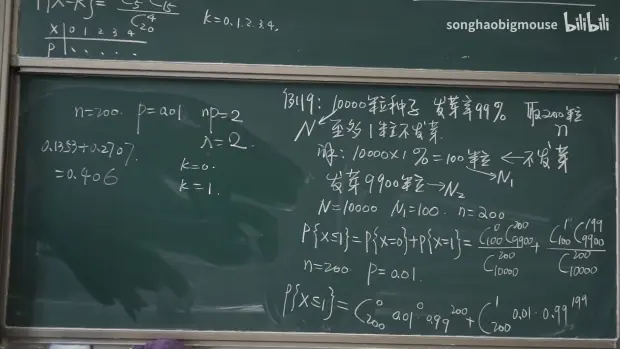 songhaobigmouse bilibili
P{X=K}= C₅ C₁₅ / C₂₀⁴
K=0.1.2.3.4.
X 0 1 2 3 4
P . . . . .
n=200. P=0.01 np=2
λ=2.
0.1353+0.2707.
=0.406
k=0.
k=1.
例19: 10000粒种子 发芽率99% 取200粒
N n
至多1粒不发芽.
解: 10000×1%=100粒 ← 不发芽
→N₁
发芽9900粒→N₂
N=10000 N₁=100. n=200
P{X≤1}=P{X=0}+P{X=1}= C₁₀₀⁰ C₉₉₀₀²⁰⁰ / C₁₀₀₀₀²⁰⁰ + C₁₀₀¹ C₉₉₀₀¹⁹⁹ / C₁₀₀₀₀²⁰⁰
n=200. P=0.01.
P{X≤1}= C₂₀₀⁰ 0.01⁰ 0.99²⁰⁰ + C₂₀₀¹ 0.01· 0.99¹⁹⁹